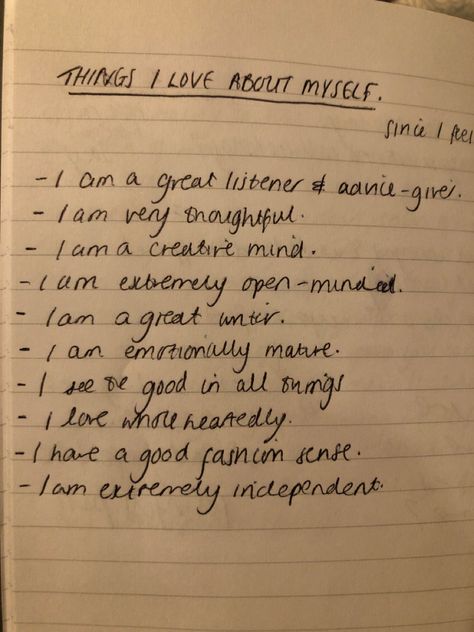 THINGS I LOVE ABOUT MYSELF.
since I feel
- I am a great listener & advice-giver.
- I am very thoughtful.
- I am a creative mind.
- I am extremely open-minded.
- I am a great writer.
- I am emotionally mature.
- I see the good in all things
- I love wholeheartedly.
- I have a good fashion sense.
- I am extremely independent.